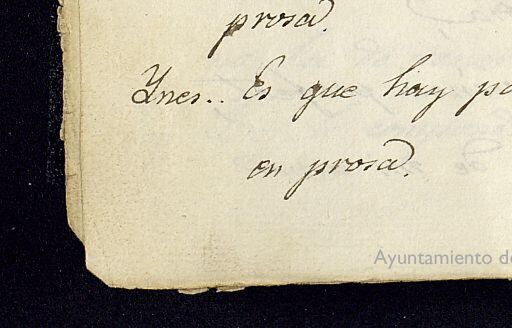 prosa.
Ynes.. Es que hay
en prosa.
Ayuntamiento de